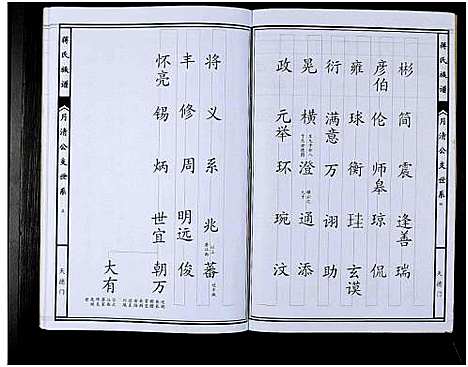 蒋氏族谱
月清公支世系
天德门
彬 简 震 逢善 瑞
彦伯 伦 师皋 琼 侃
雍 球 衡 珪 玄谟
衍 满意 万 诩 助
晃 横 澄 通 添
政 元举 环 琬 汶
将 义 系 兆 蕃
丰 修 周 明远 俊
怀亮 锡 炳 世宜 朝万
大有
蒋氏族谱
月清公支世系
天德门